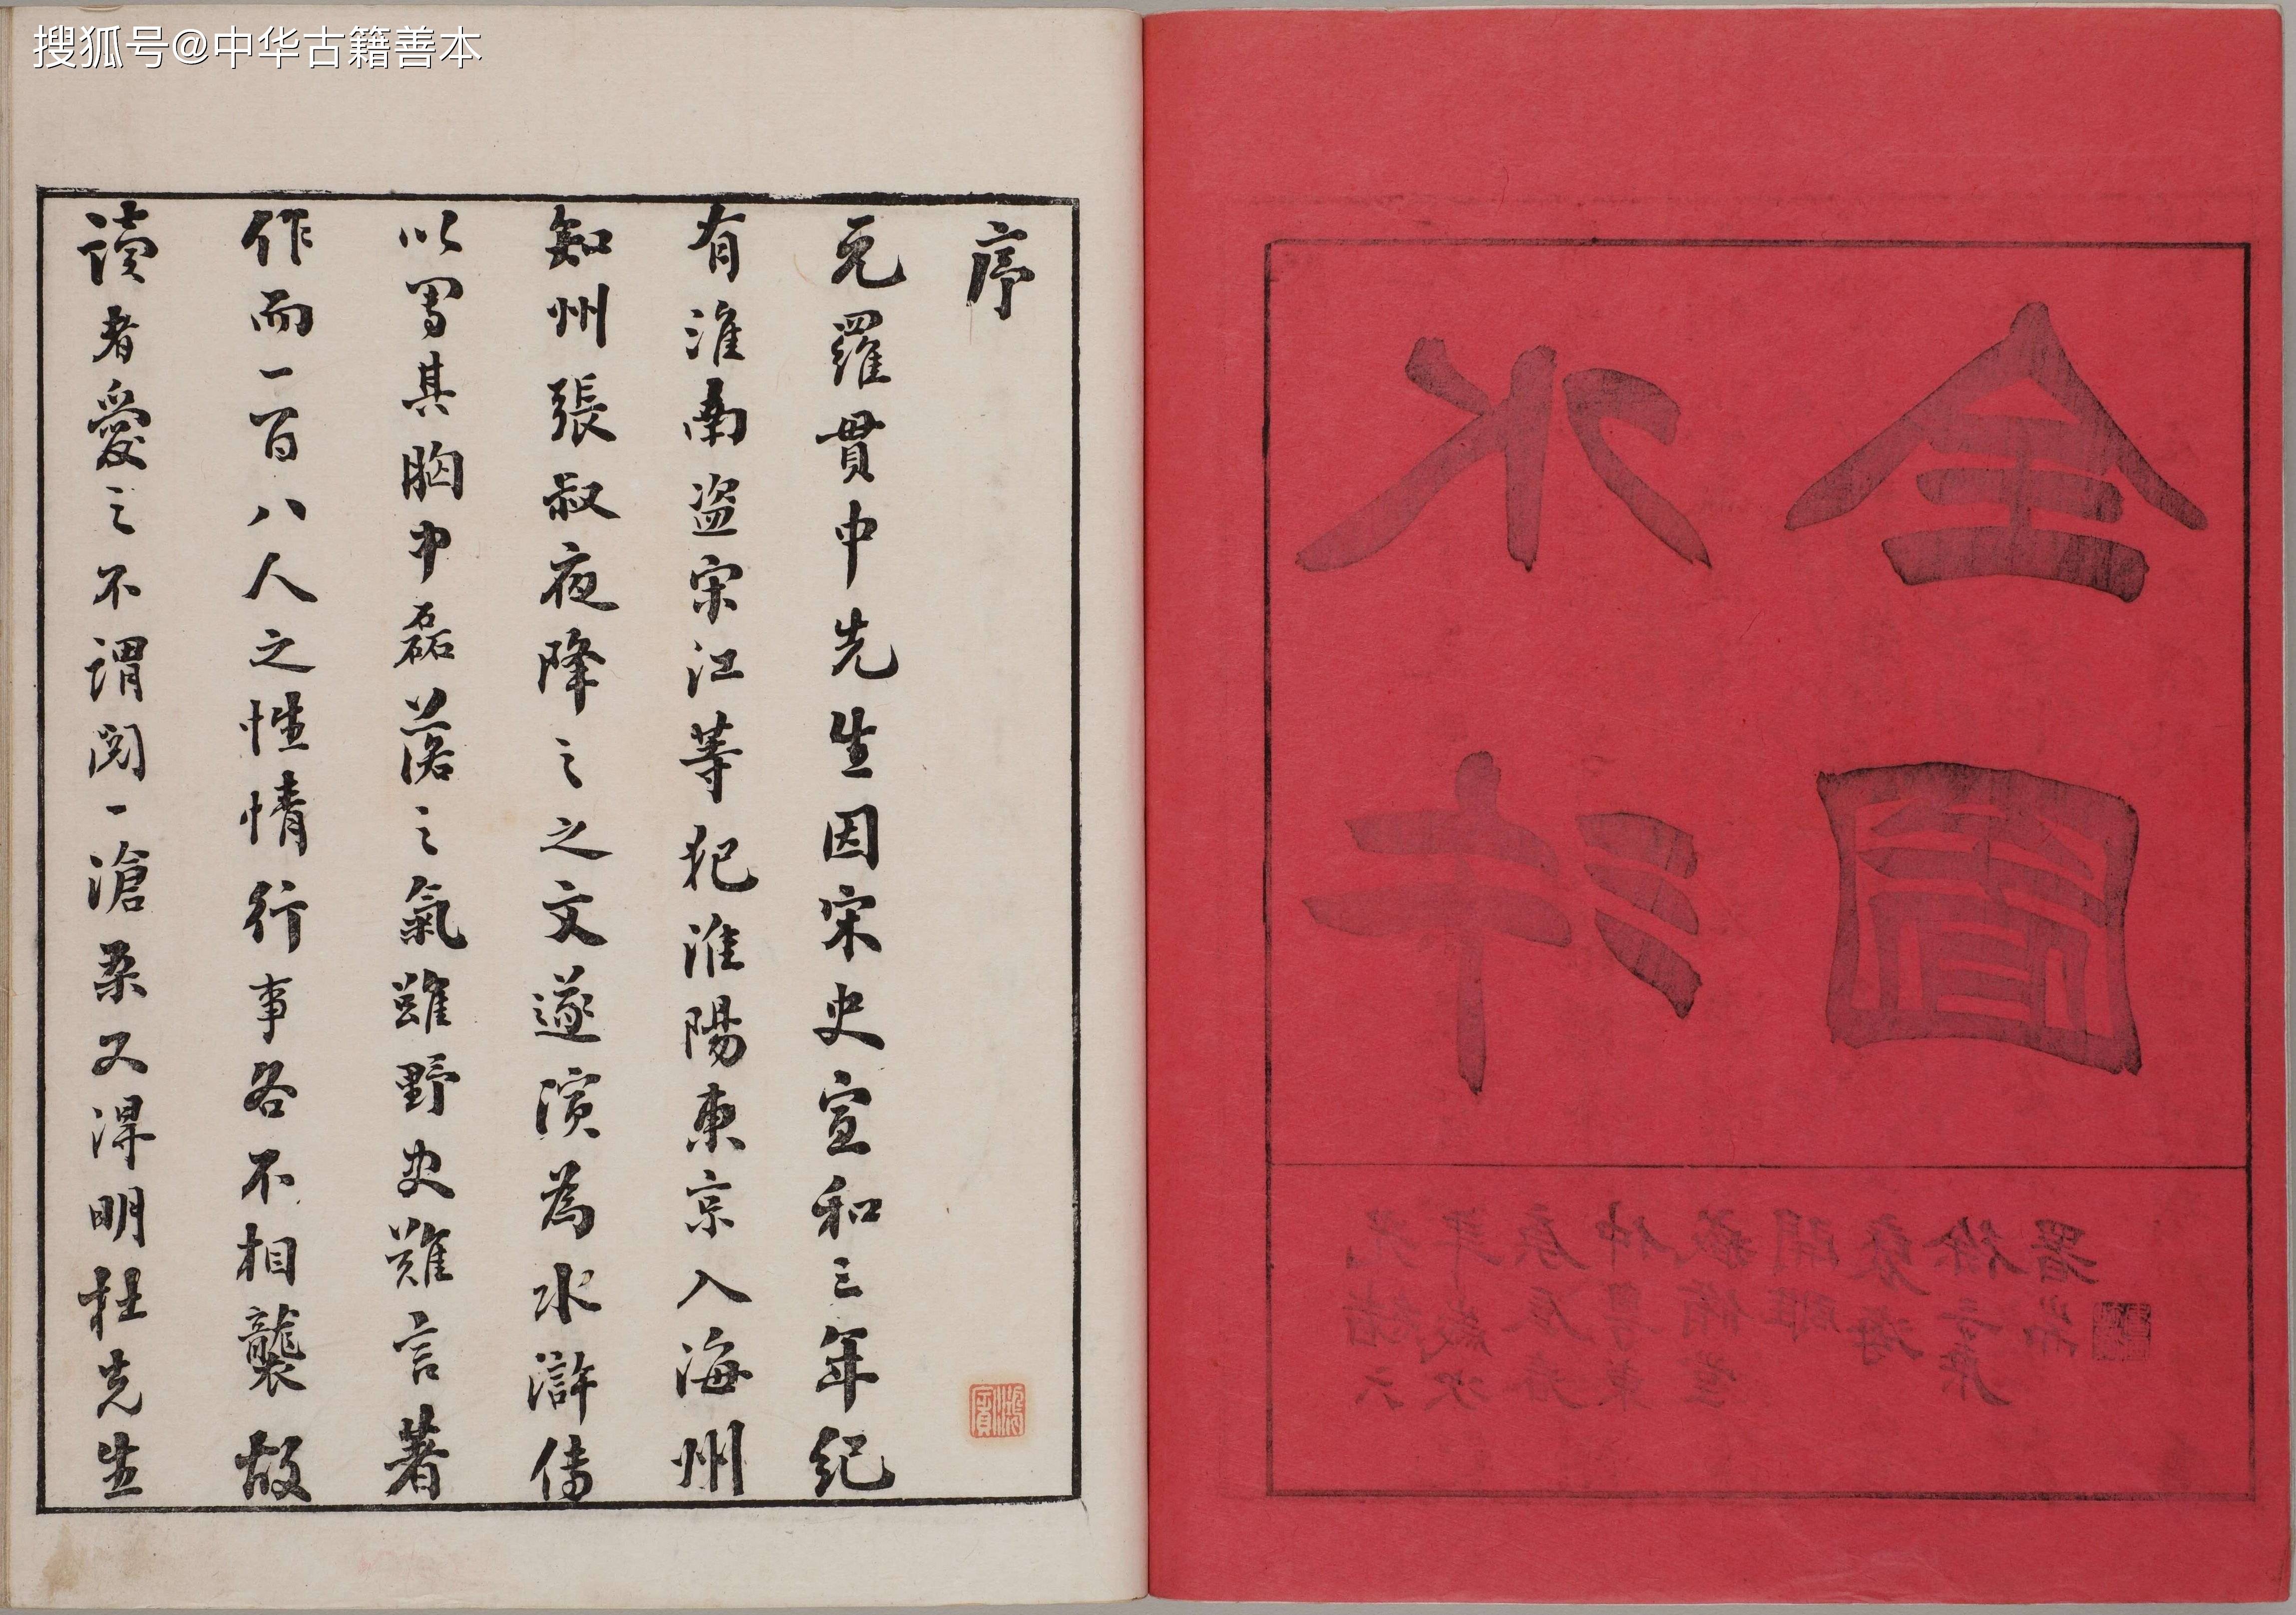 搜狐号@中华古籍善本
水汻
全圖
光緒六
年歲次
庚辰春
仲粵東
臧脩堂
開雕
署耑
序
元羅貫中先生因宋史宣和三年紀
有淮南盗宋江等犯淮陽東京入海州
知州張叔夜降之之文遂演為水滸傳
以寫其胸中磊落之氣雖野史難言著
作而一百八人之性情行事各不相襲故
讀者愛之不謂閱一滄桑又得明杜先生